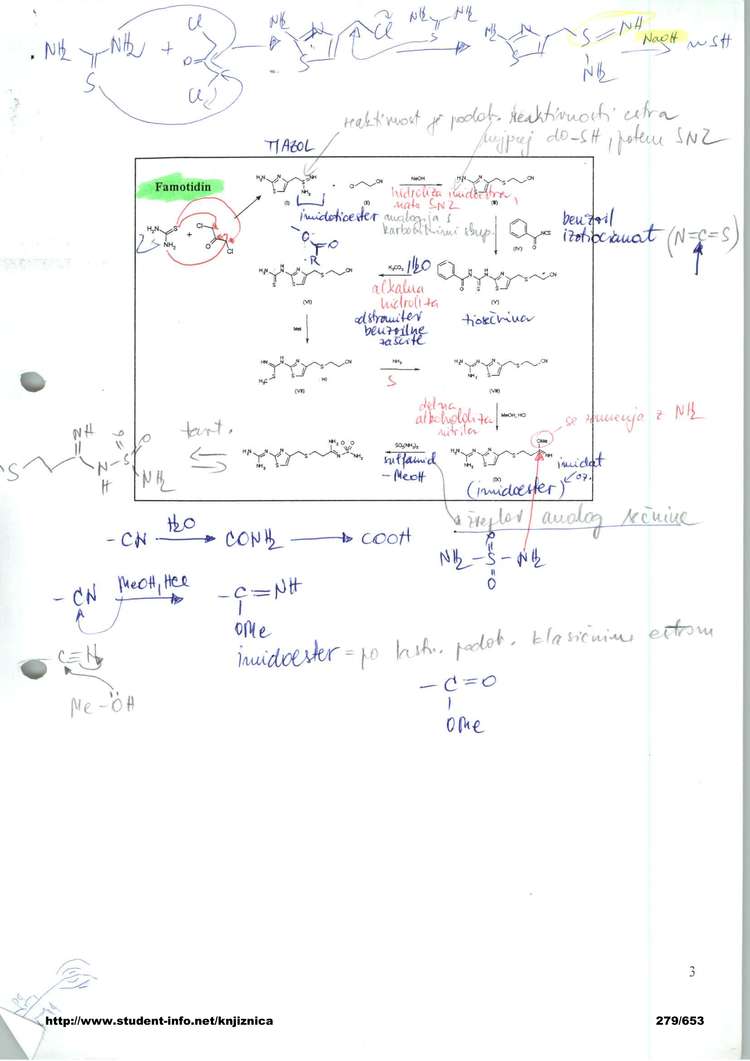 NH2 NH2 + Cl O Cl S
NH2 N S Cl
NH2 NH2 S
NH2 N S S=NH NH2
NaOH ~SH
reaktivnost je podob. reaktivnosti estra
najprej do -SH, potem SN2
TIAZOL
Famotidin
(I) (II) NaOH (III)
hidroliza imidoestra,
nato SN2
imidotioester
analogija s
karboksilnimi skup.
(IV)
benzoil
izotiocianat (N=C=S)
K2CO3 H2O
(VI) (V)
alkalna
hidroliza
odstranitev
benzoilne
zaščite
tiosečnina
MeI
NH3
(VII) (VIII)
S
delna
alkoholiza
nitrila
MeOH, HCl
se zamenja z NH2
OMe
taut.
SO2(NH2)2
sulfamid
-MeOH
(IX)
imidat
oz.
(imidoester)
NH
S N H S O O NH2
žveplov analog sečnine
-CN H2O CONH2 COOH
NH2 - S - NH2
O
O
-CN MeOH, HCl - C = NH
OMe
imidoester = po kstr. podob. klasičnim estrom
C≡N
Me-ÖH
- C = O
OMe
3
http://www.student-info.net/knjiznica 279/653